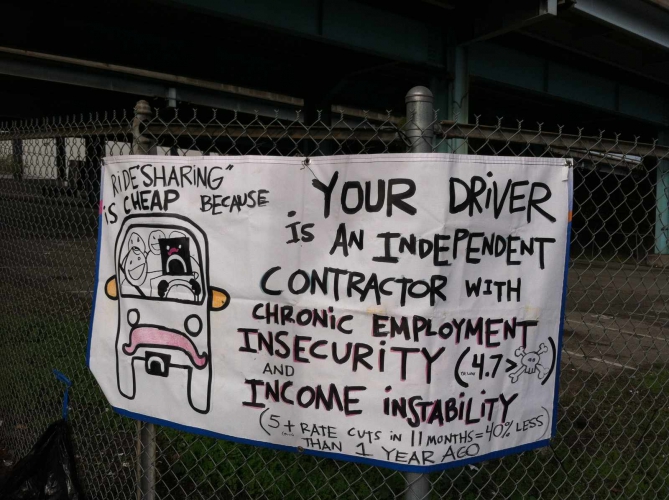 RIDE"SHARING"
IS CHEAP BECAUSE
YOUR DRIVER
is AN INDEPENDENT
CONTRACTOR WITH
CHRONIC EMPLOYMENT
INSECURITY (4.7>
AND
INCOME iNSTABILITY
(5+ RATE CUTS IN 11 MONTHS = 40% LESS)
THAN 1 YEAR AGO